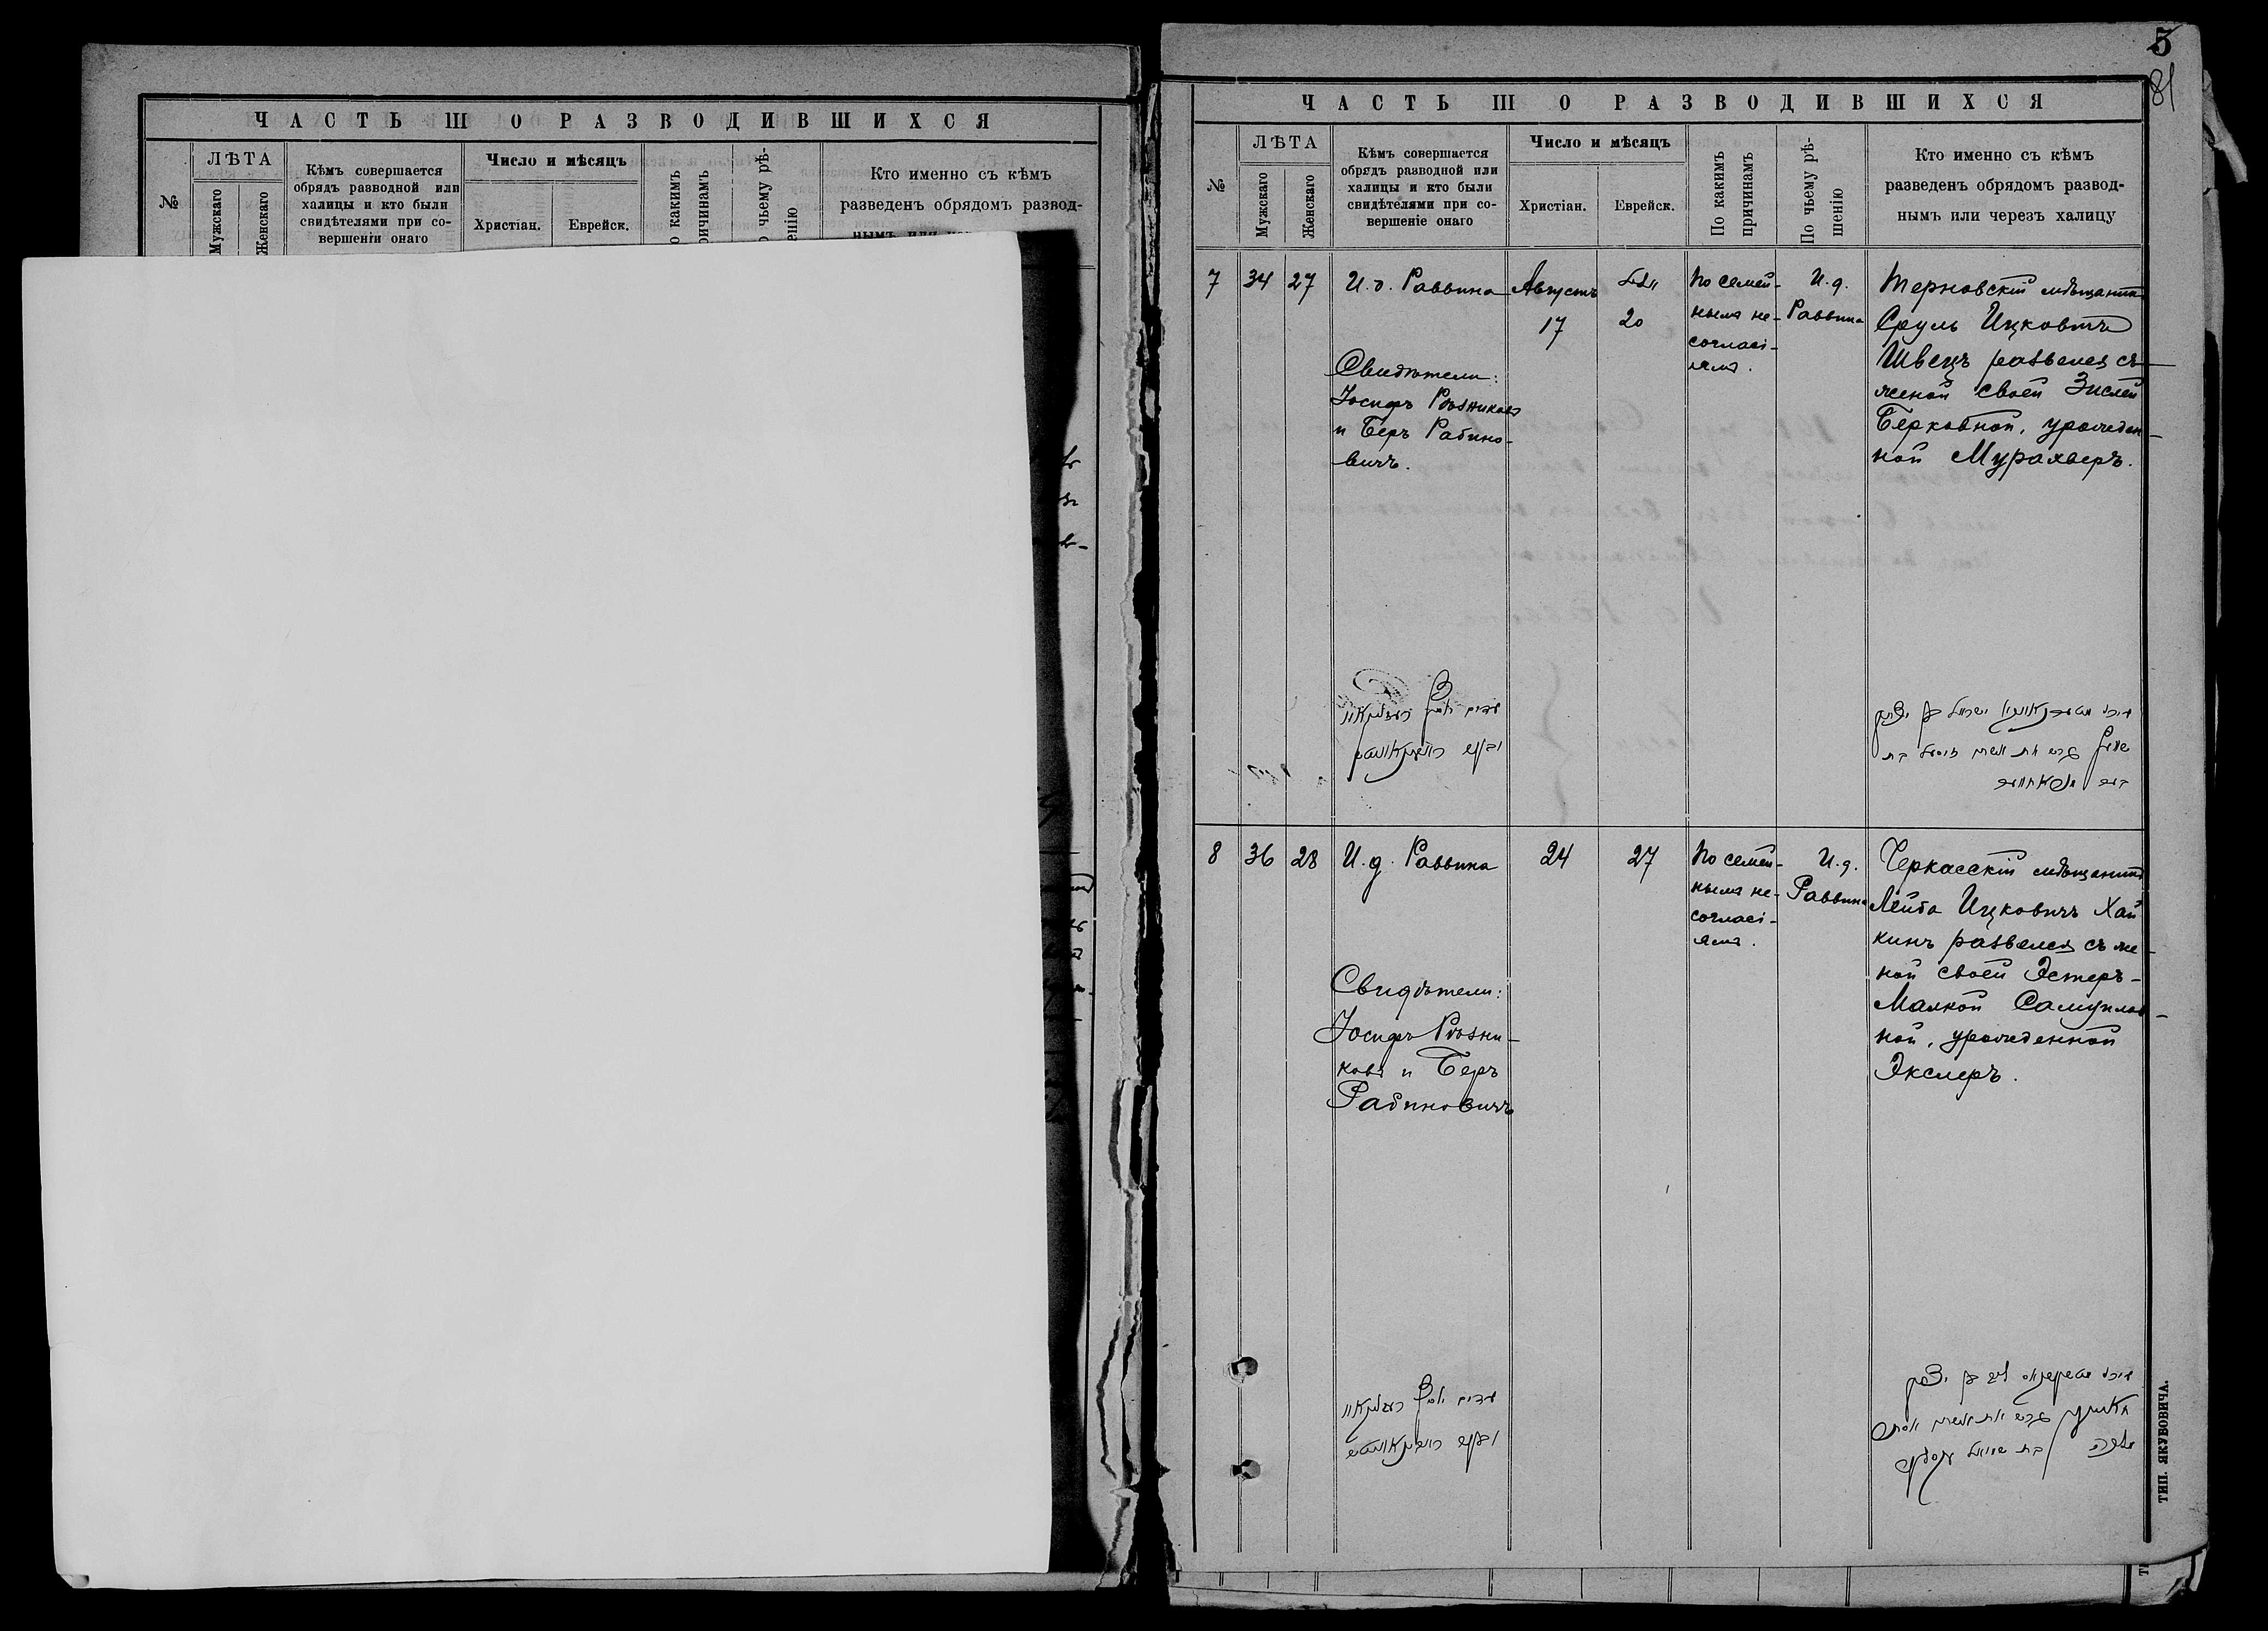 ЧАСТЬ III О РАЗВОДИВШИХСЯ
№
ЛѢТА
Мужскаго
Женскаго
Кѣмъ совершается
обрядъ разводной или
халицы и кто были
свидѣтелями при со-
вершеніи онаго
Число и мѣсяцъ
Христіан.
Еврейск.
о какимъ
ричинамъ
чьему рѣ-
енію
Кто именно съ кѣмъ
разведенъ обрядомъ развод-
5
81
ЧАСТЬ III О РАЗВОДИВШИХСЯ
№
ЛѢТА
Мужскаго
Женскаго
Кѣмъ совершается
обрядъ разводной или
халицы и кто были
свидѣтелями при со-
вершеніе онаго
Число и мѣсяцъ
Христіан.
Еврейск.
По какимъ
причинамъ
По чьему рѣ-
шенію
Кто именно съ кѣмъ
разведенъ обрядомъ развод-
нымъ или черезъ халицу
7
34
27
И. д. Раввина
Свидѣтели:
Іосифъ Рѣзниковъ
и Беръ Рабино-
вичъ.
Августъ
17
20
По семей-
нымъ не-
согласі-
ямъ.
И. д.
Раввина
Терновскій мѣщанинъ
Сруль Ицковичъ
Швецъ развелся съ
женой своей Зислей
Берковной, урожден-
ной Мурахверъ.
8
36
28
И. д. Раввина
Свидѣтели:
Іосифъ Рѣзни-
ковъ и Беръ
Рабиновичъ
24
27
По семей-
нымъ не-
согласі-
ямъ.
И. д.
Раввина
Черкасскій мѣщанинъ
Лейба Ицковичъ Хай
кинъ развелся съ же-
ной своей Эстеръ-
Малкой Самуилов-
ной, урожденной
Экслеръ.
ТИП. ЯКУБОВИЧА.